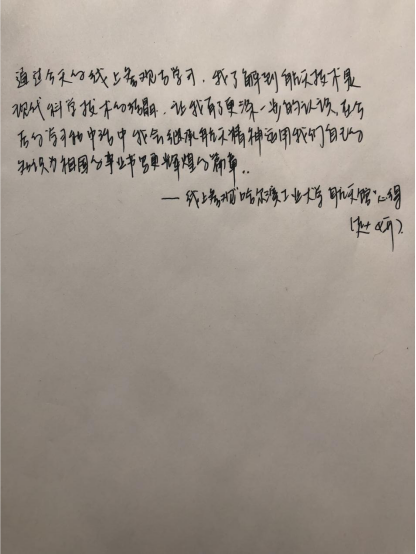 通过今天的线上参观与学习，我了解到航天技术是
现代科学技术的结晶，让我有了更深一步的认识，在今
后的学习和生活中我会继承航天精神运用我们自己的
知识为祖国的事业书写更辉煌的篇章..
——线上参观"哈尔滨工业大学航天馆"心得